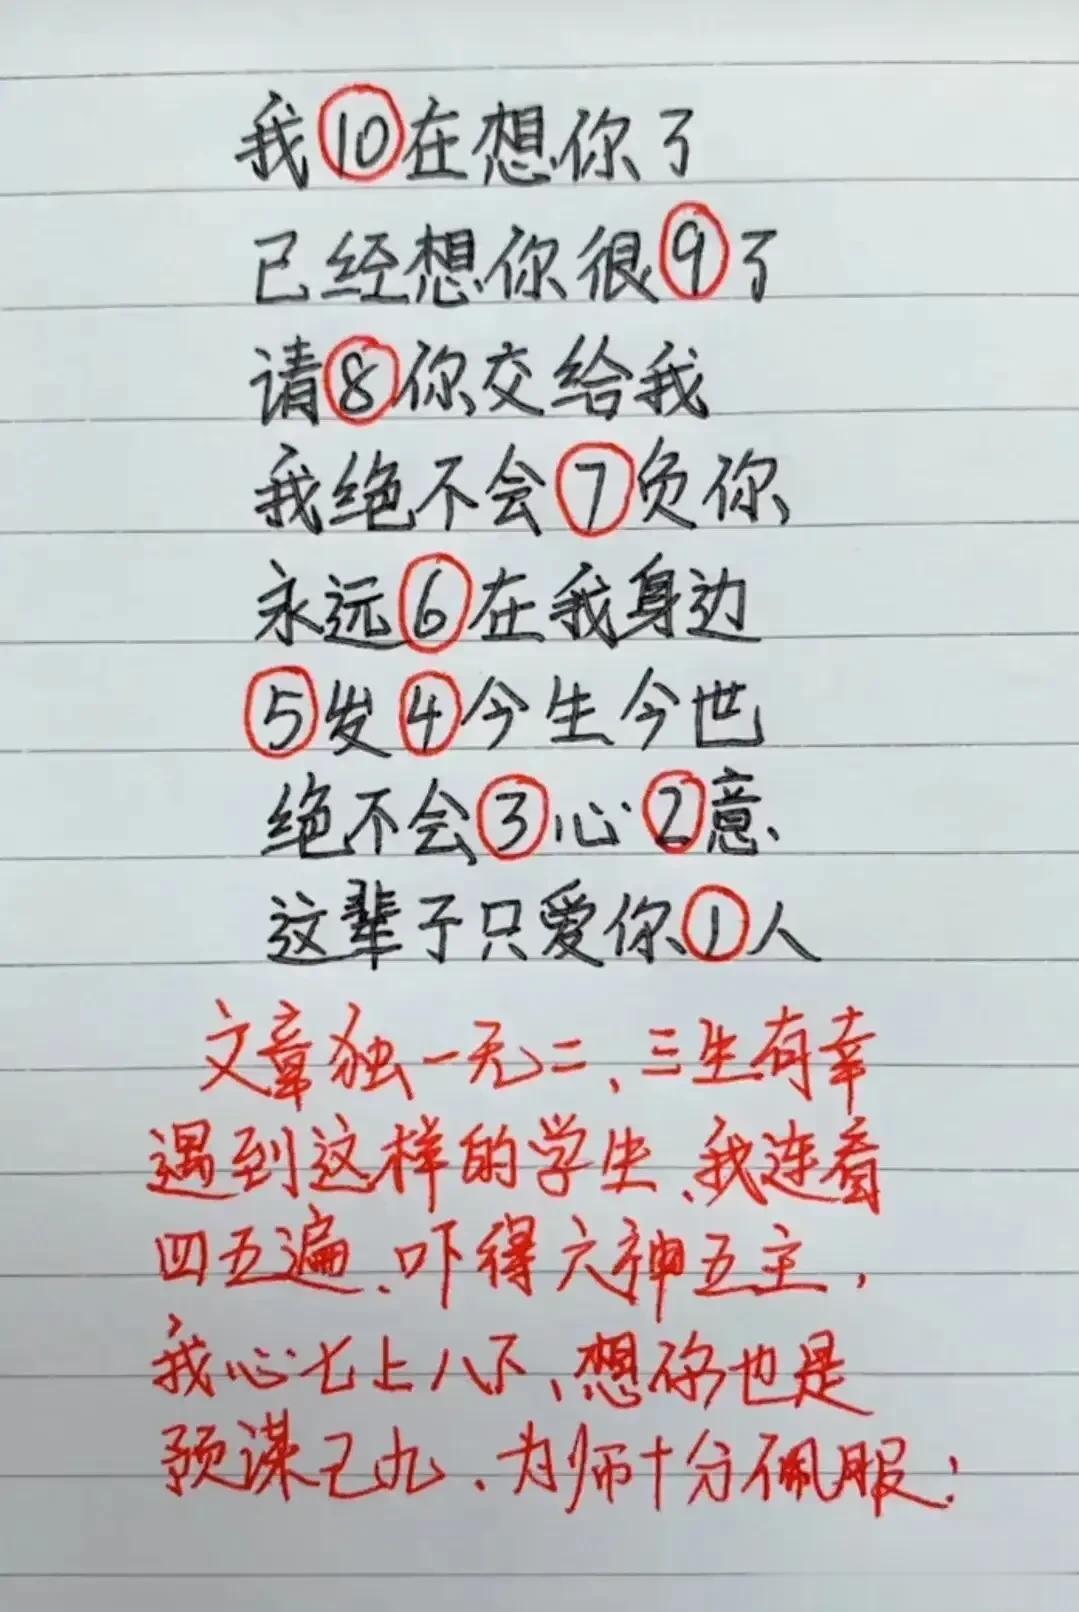 我10在想你了
已经想你很9了
请8你交给我
我绝不会7负你
永远6在我身边
5发4今生今世
绝不会3心2意
这辈子只爱你1人
文章独一无二、三生有幸
遇到这样的学生、我连看
四五遍、吓得六神五主，
我心七上八下、想你也是
预谋已九、为师十分佩服！